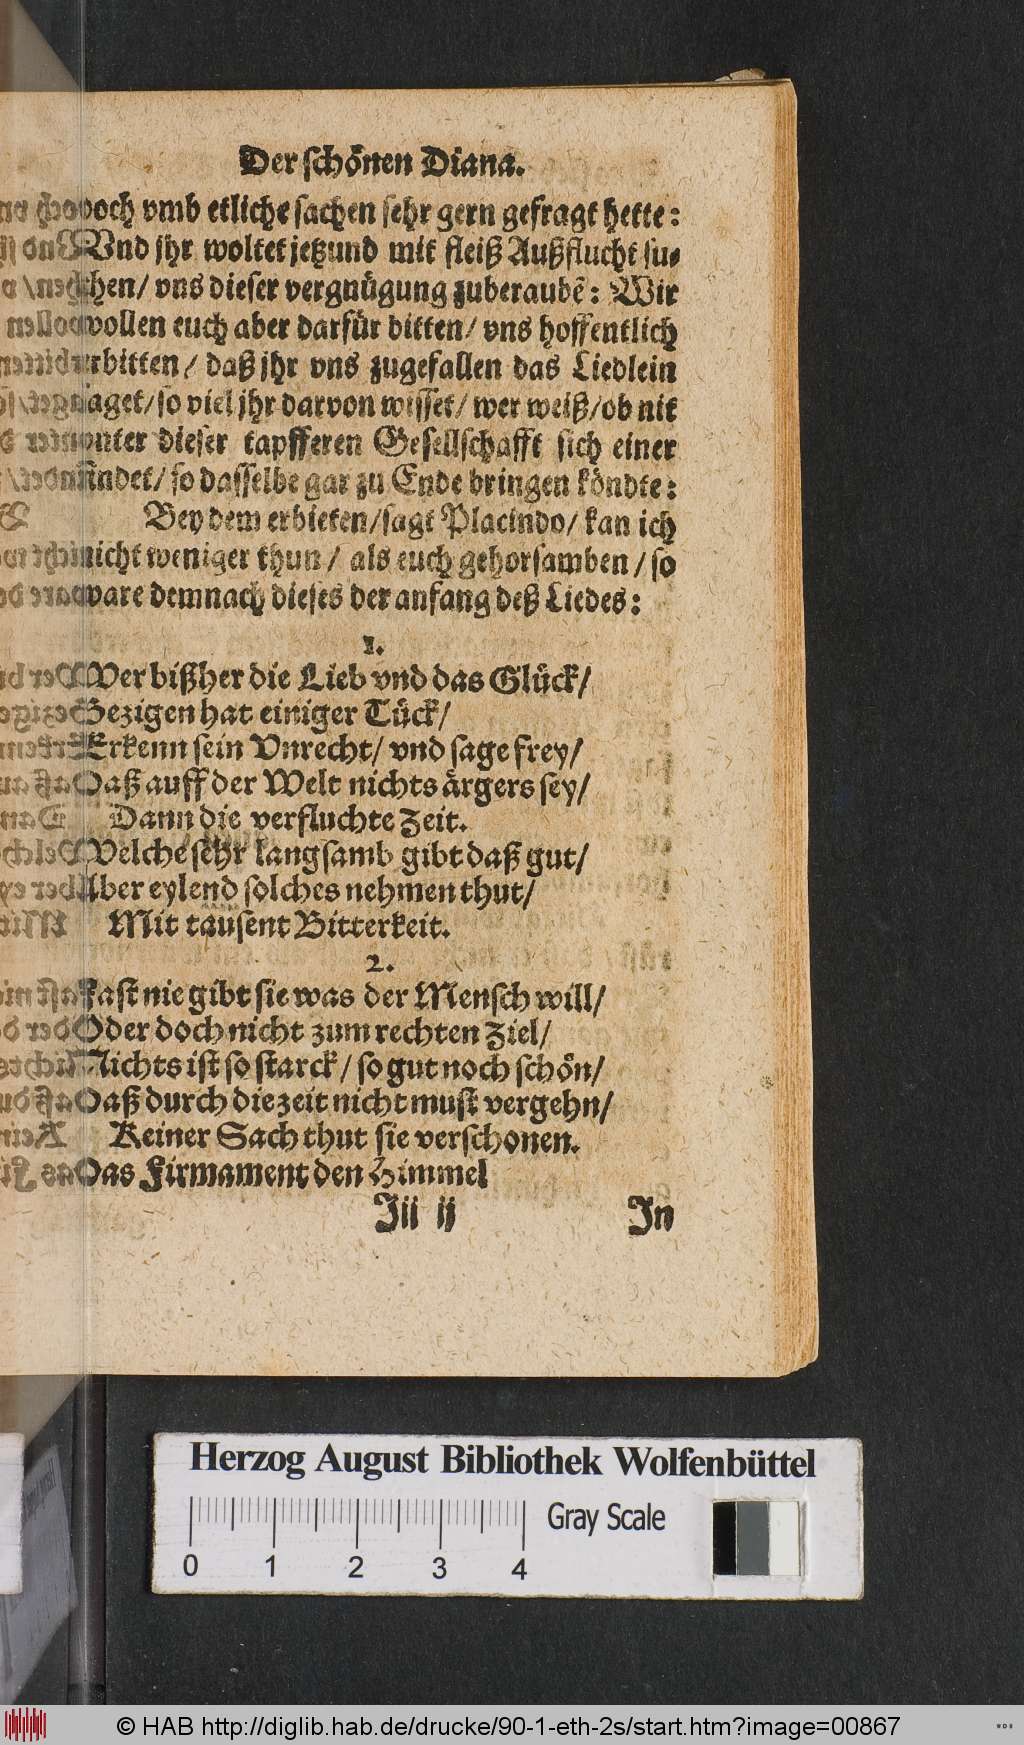 Der schönen Diana.
doch vmb etliche sachen sehr gern gefragt hette:
Vnd jhr woltet jetzund mit fleiß Außflucht su-
chen/ vns dieser vergnügung zuberaubẽ: Wir
wollen euch aber darfür bitten/ vns hoffentlich
erbitten/ daß jhr vns zugefallen das Liedlein
saget/ so viel jhr darvon wisset/ wer weiß/ ob nit
vnter dieser tapfferen Gesellschafft sich einer
findet/ so dasselbe gar zu Ende bringen köndte:
Bey dem erbieten/ sagt Placindo/ kan ich
nicht weniger thun/ als euch gehorsamben/ so
ware demnach dieses der anfang deß Liedes:
1.
Wer bißher die Lieb vnd das Glück/
Gezigen hat einiger Tück/
Erkenn sein Vnrecht/ vnd sage frey/
Daß auff der Welt nichts ärgers sey/
Dann die verfluchte Zeit.
Welche sehr langsamb gibt daß gut/
Aber eylend solches nehmen thut/
Mit tausent Bitterkeit.
2.
Fast nie gibt sie was der Mensch will/
Oder doch nicht zum rechten Ziel/
Nichts ist so starck/ so gut noch schön/
Daß durch die zeit nicht must vergehn/
Keiner Sach thut sie verschonen.
Das Firmament den Himmel
Jii ij In
Herzog August Bibliothek Wolfenbüttel
Gray Scale
0 1 2 3 4
© HAB http://diglib.hab.de/drucke/90-1-eth-2s/start.htm?image=00867